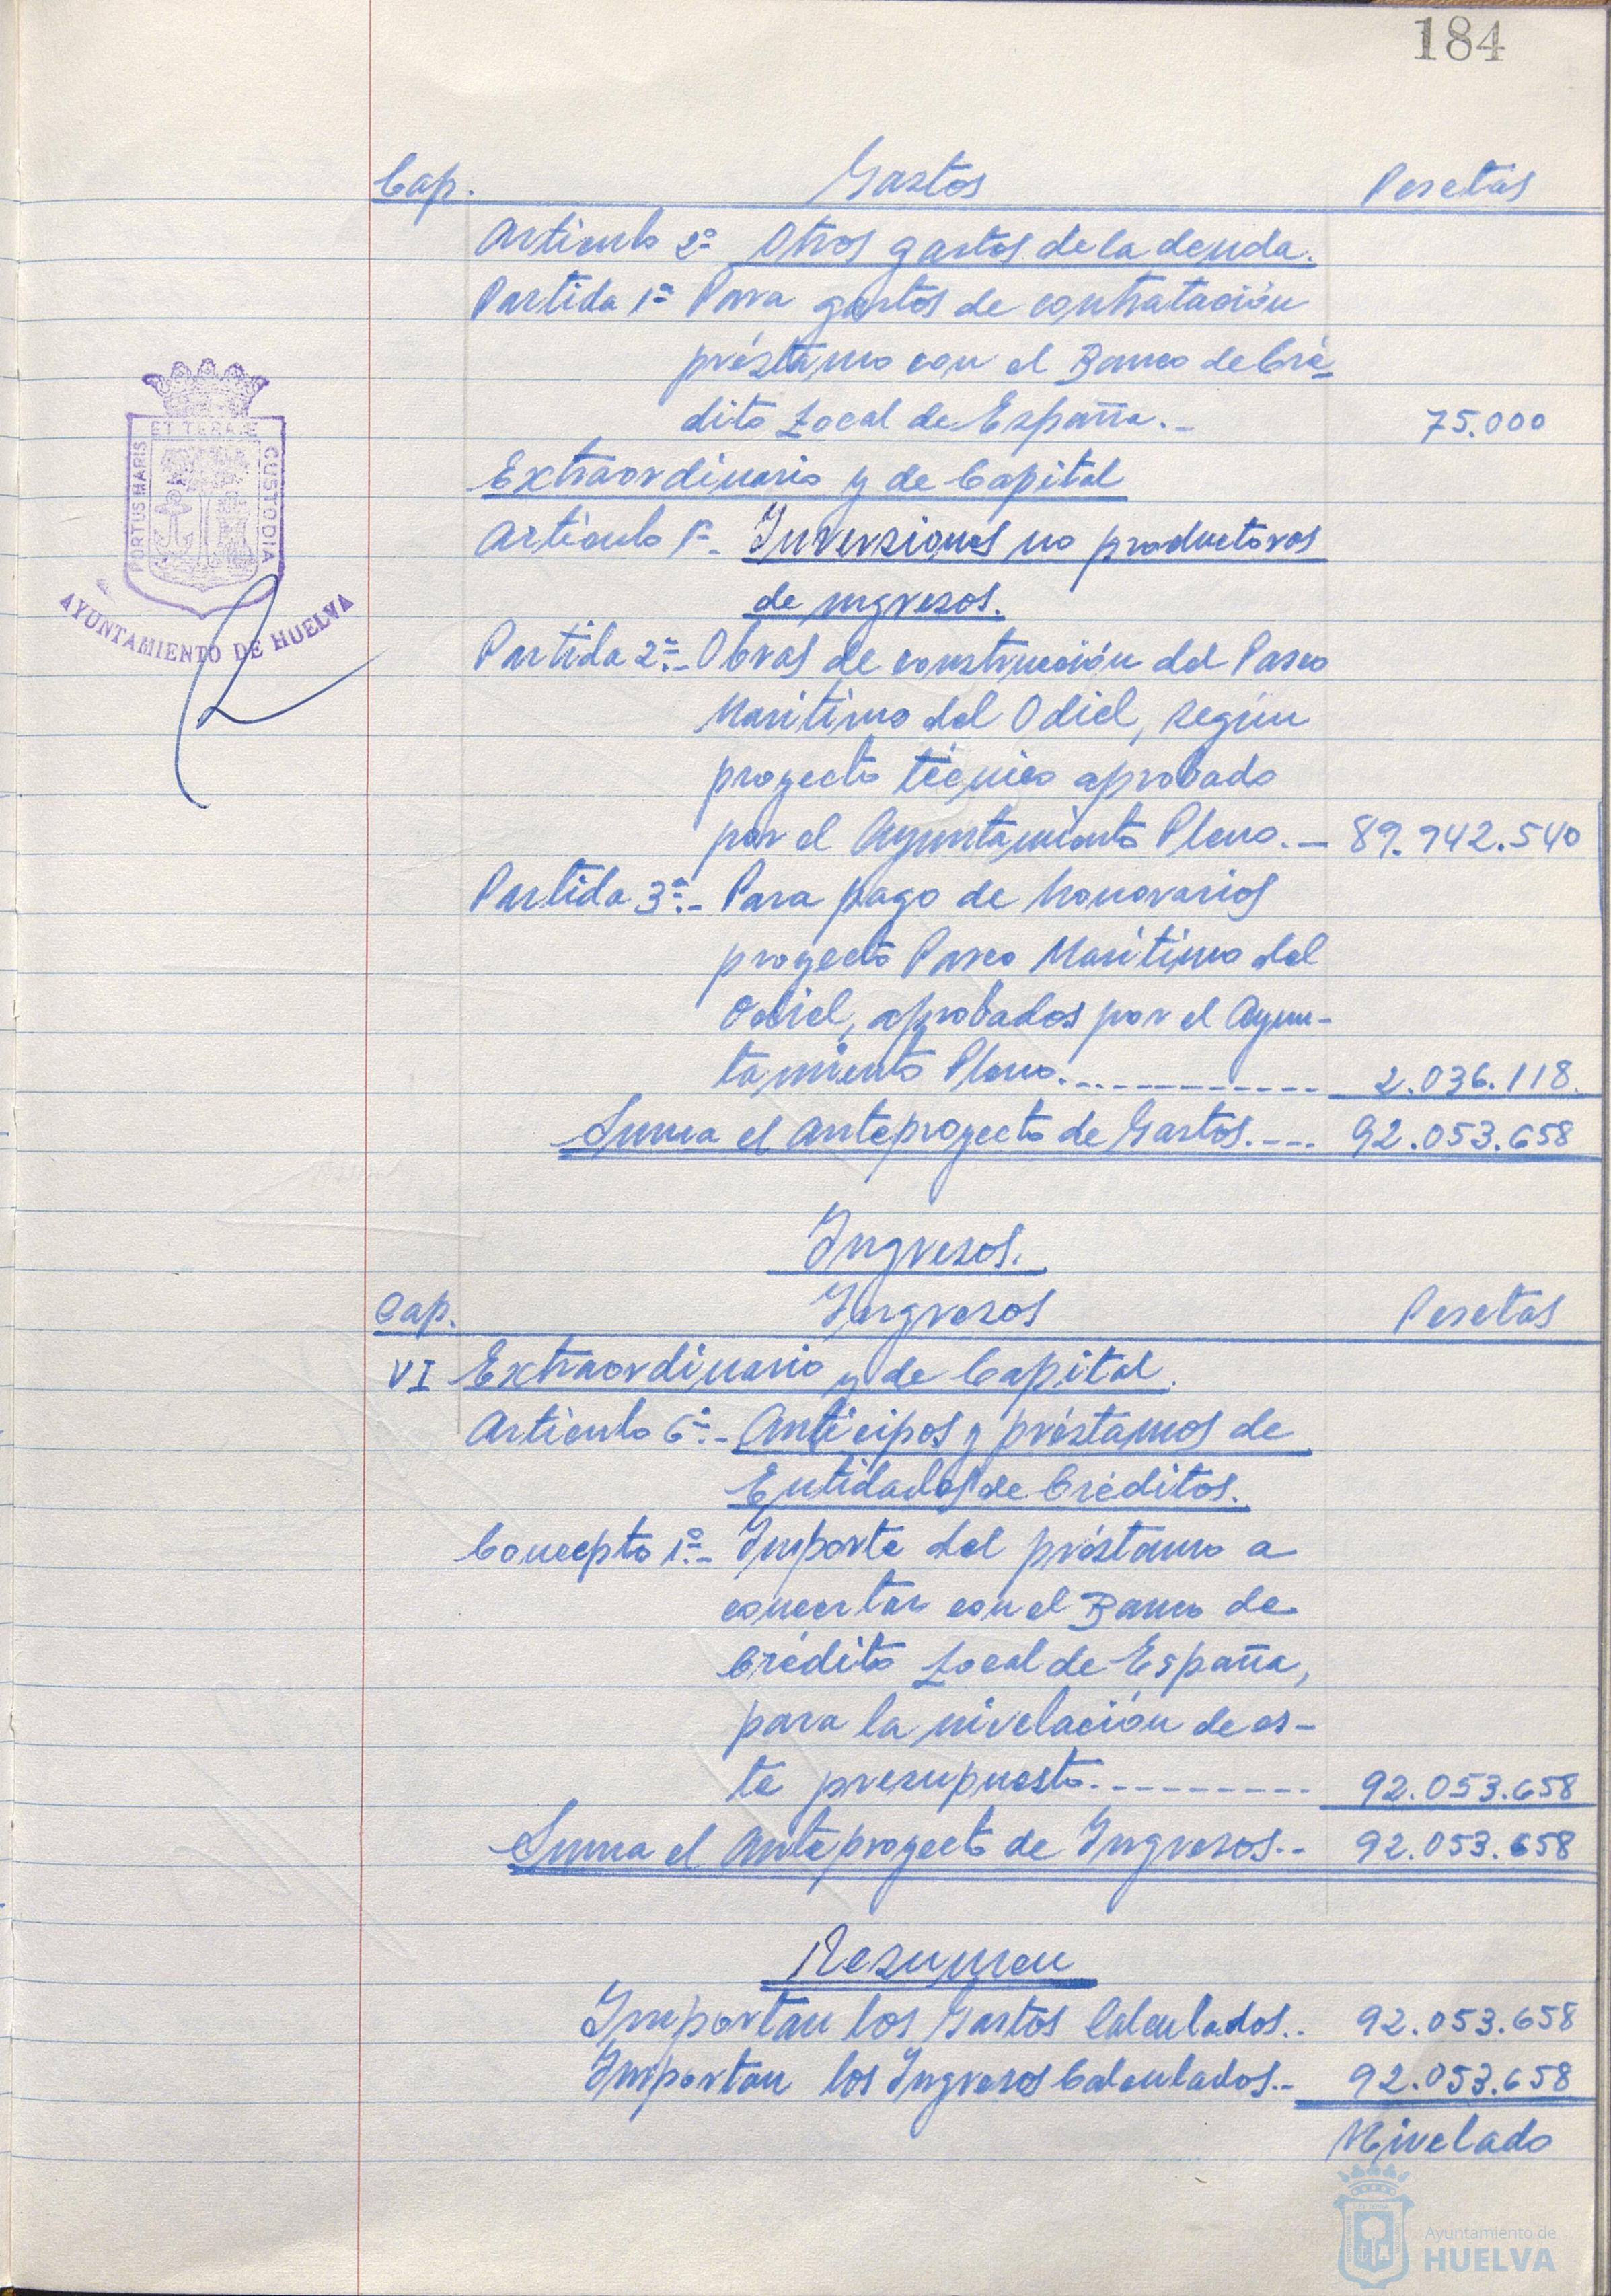 184
Cap. Gastos Pesetas
Artículo 2º Otros gastos de la deuda.
Partida 1ª Para gastos de contratación
préstamo con el Banco de Cré-
dito Local de España.- 75.000
Extraordinario y de Capital
Artículo 1º.- Inversiones no productoras
de ingresos.
Partida 2ª.- Obras de construcción del Paseo
Marítimo del Odiel, según
proyecto técnico aprobado
por el Ayuntamiento Pleno.- 89.942.540
Partida 3ª.- Para pago de honorarios
proyecto Paseo Marítimo del
Odiel, aprobados por el Ayun-
tamiento Pleno.- 2.036.118.
Suma el Anteproyecto de Gastos.--- 92.053.658
Ingresos.
Cap. Ingresos Pesetas
VI Extraordinario y de Capital.
Artículo 6º.- Anticipos y préstamos de
Entidades de Créditos.
Concepto 1º.- Importe del préstamo a
concertar con el Banco de
Crédito Local de España,
para la nivelación de es-
te presupuesto.--------- 92.053.658
Suma el Anteproyecto de Ingresos.-- 92.053.658
Resumen
Importan los Gastos Calculados.. 92.053.658
Importan los Ingresos Calculados.- 92.053.658
Nivelado
PORTUS MARIS
ET TERRAE
CUSTODIA
AYUNTAMIENTO DE HUELVA
Ayuntamiento de
HUELVA